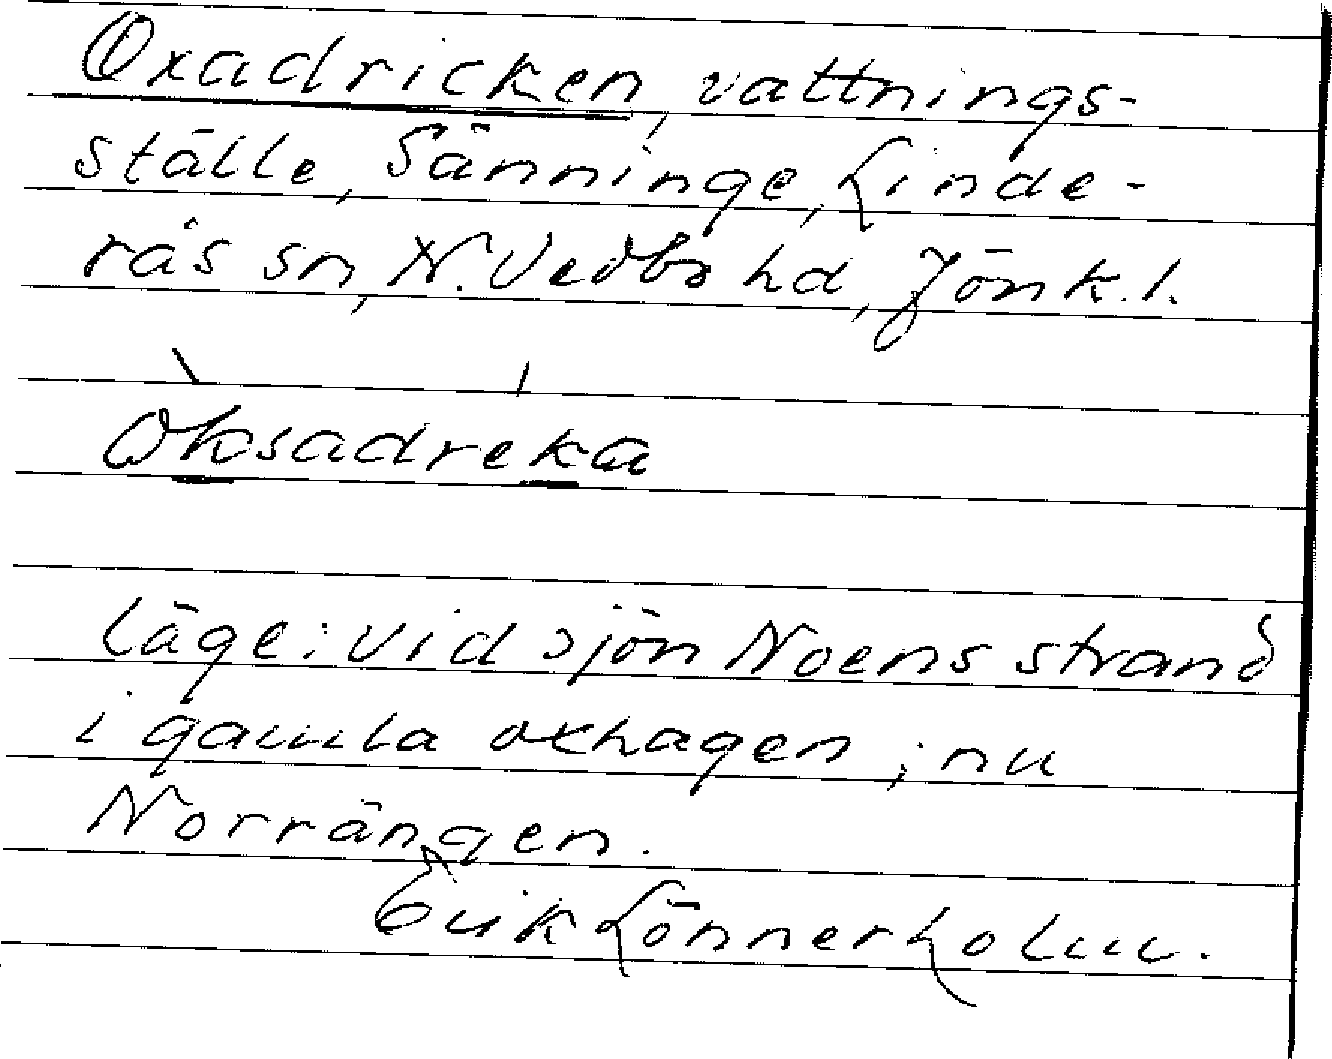 Oxadricken, vattnings-
ställe, Sänninge, Linde-
rås sn, N. Vedbo hd, Jönk. l.
Oksadreka
Läge: vid sjön Noens strand
i gamla oxhagen; nu
Norrängen.
Erik Lönnerholm.